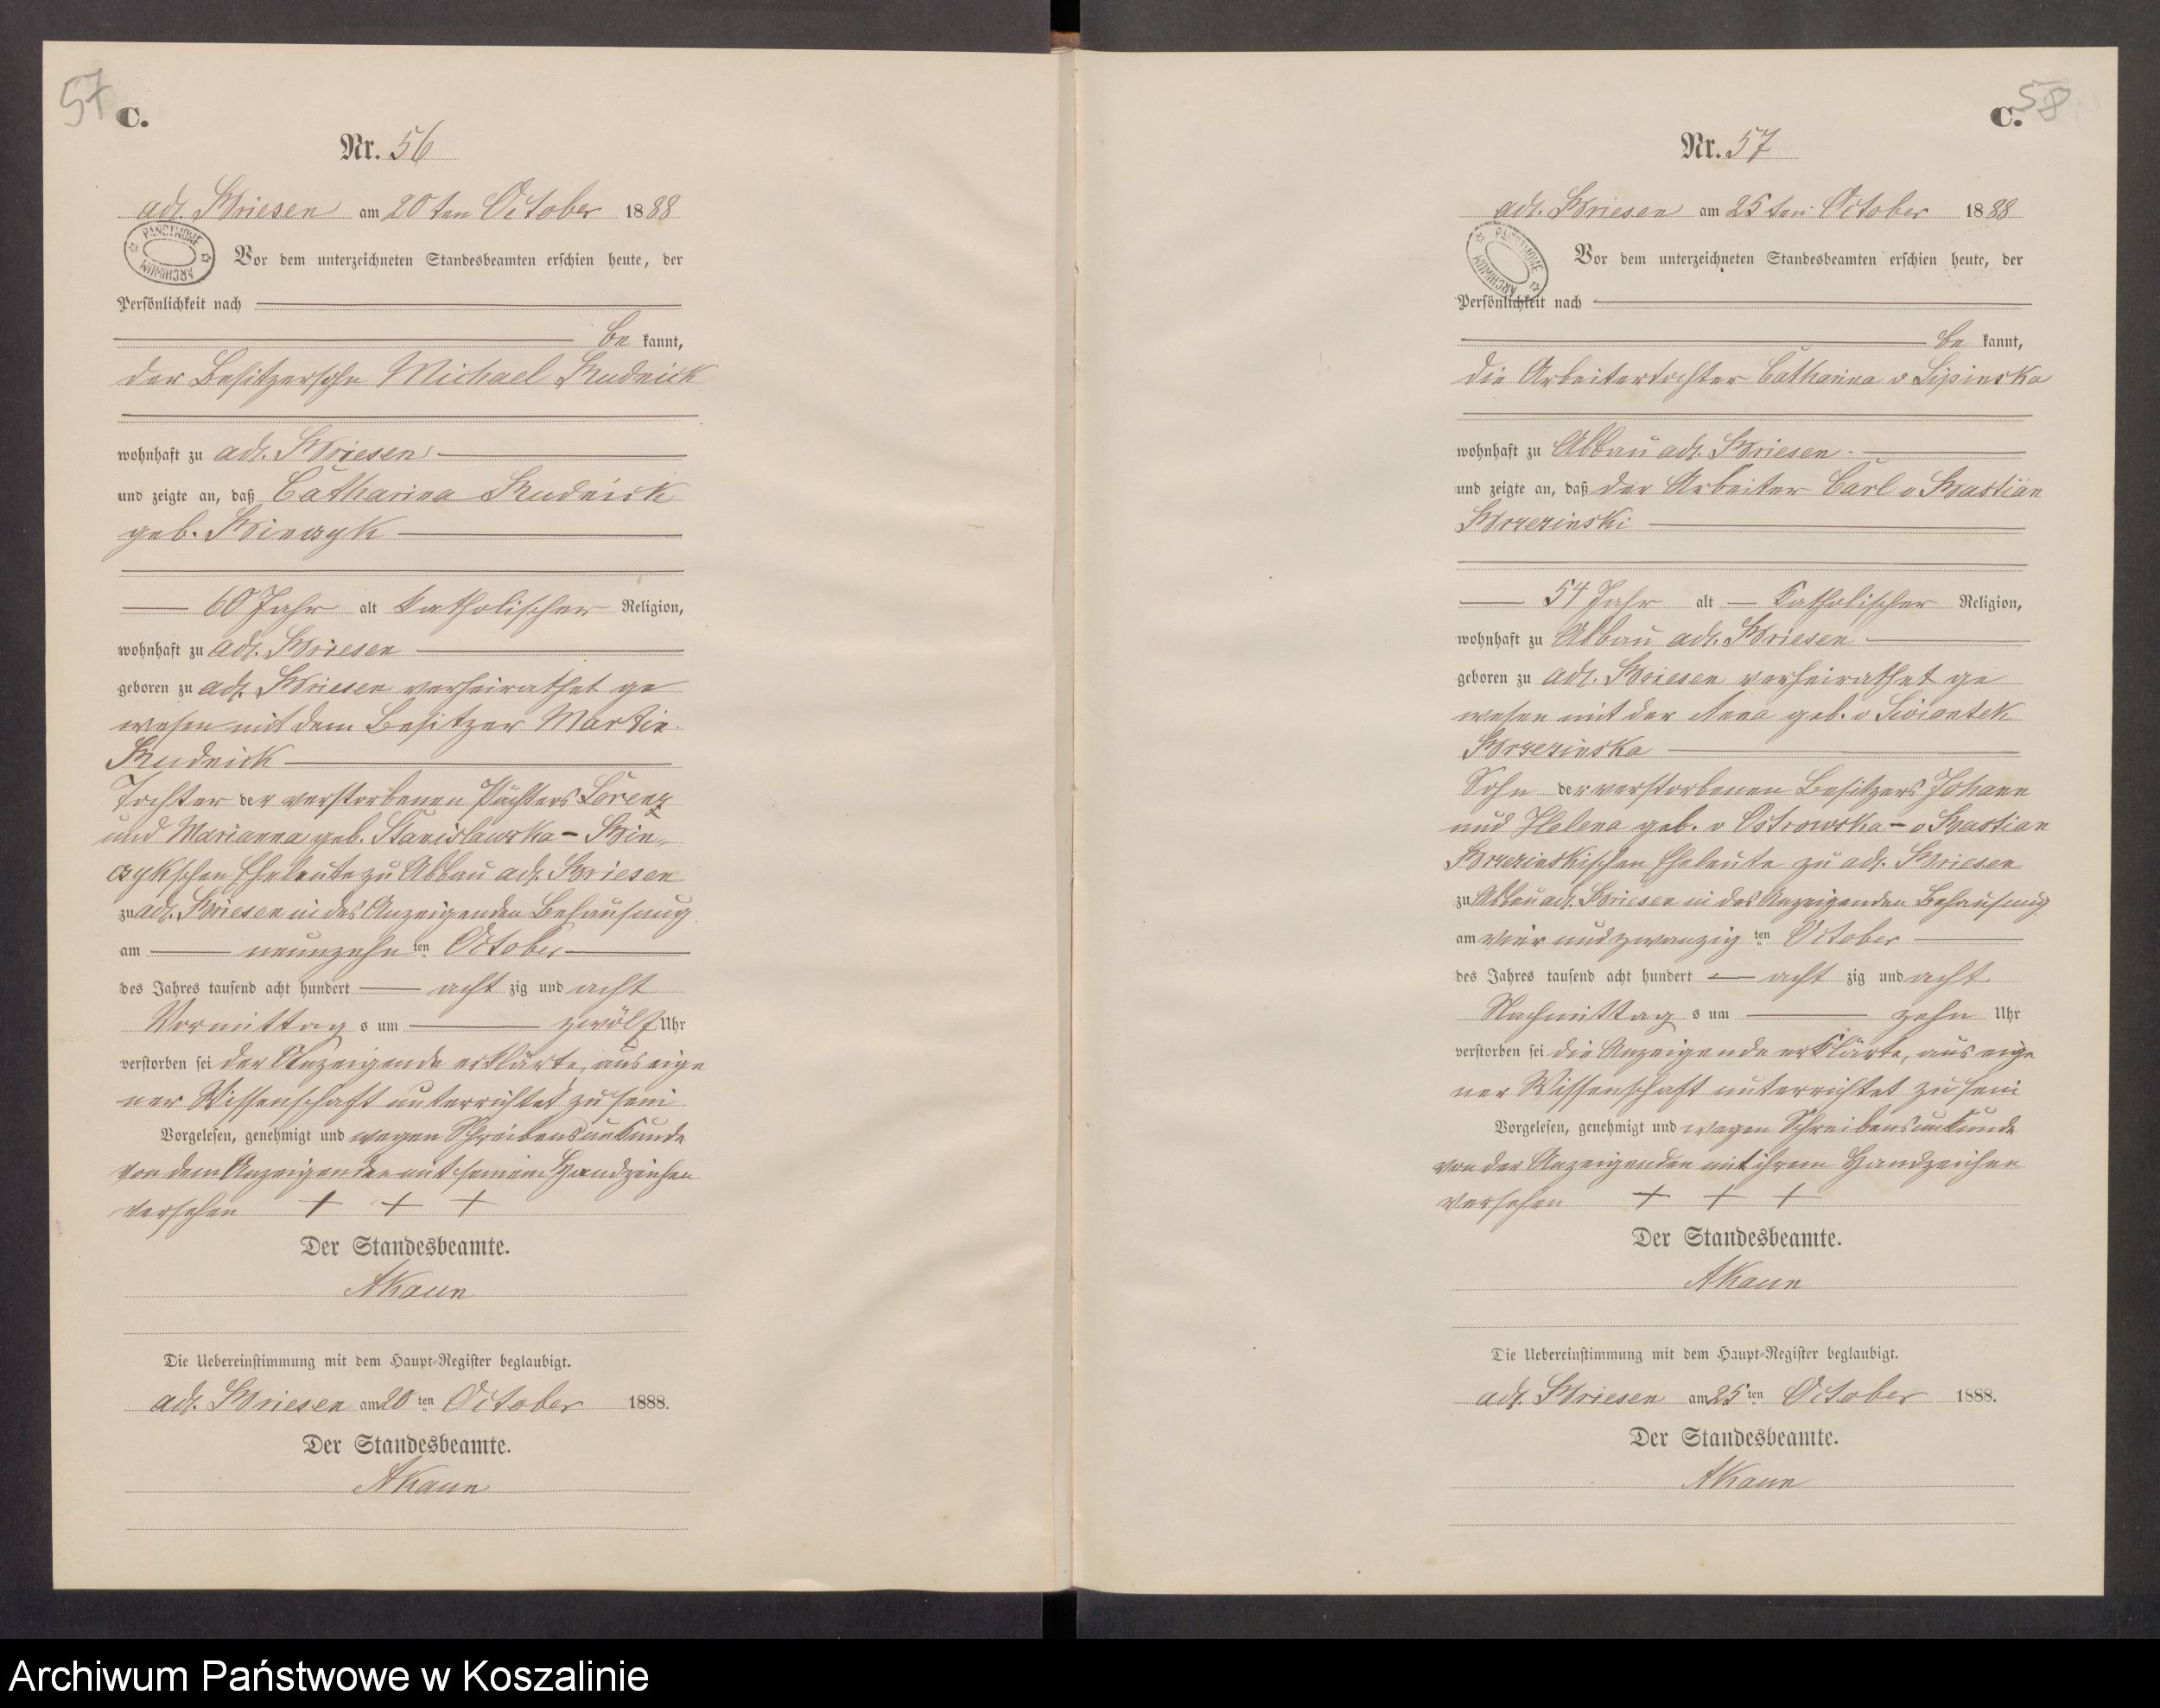 57
C.
Nr. 56
adl. Briesen am 20ten October 1888
PAŃSTWOWE ARCHIWUM
Vor dem unterzeichneten Standesbeamten erschien heute, der
Persönlichkeit nach
be kannt,
der Besitzersohn Michael Rudnick
wohnhaft zu adl. Briesen
und zeigte an, daß Catharina Rudnick
geb.
60 Jahr alt katholischer Religion,
wohnhaft zu adl. Briesen
geboren zu adl. Briesen verheirathet ge
wesen mit dem Besitzer Martin
Rudnick
Tochter der verstorbenen Pächters Lorenz
und Marianna geb. Stanislawska -
Eheleute zu Abbau adl. Briesen
zu adl. Briesen in des Anzeigenden Behausung
am neunzehnten October
des Jahres tausend acht hundert acht zig und acht
Vormittag s um zwölf Uhr
verstorben sei der Anzeigende erklärte, aus eige
ner Wissenschaft unterrichtet zu sein
Vorgelesen, genehmigt und wegen Schreibensunkunde
von dem Anzeigenden mit seinem Handzeichen
versehen + + +
Der Standesbeamte.
Die Uebereinstimmung mit dem Haupt-Register beglaubigt.
adl. Briesen am 20 ten October 1888.
Der Standesbeamte.
58
C.
Nr. 57
adl. Briesen am 25ten October 1888
PAŃSTWOWE ARCHIWUM
Vor dem unterzeichneten Standesbeamten erschien heute, der
Persönlichkeit nach
be kannt,
die Arbeitertochter Catharina v Lipinska
wohnhaft zu Abbau adl. Briesen
und zeigte an, daß der Arbeiter Carl v
Brzezinski
54 Jahr alt katholischer Religion,
wohnhaft zu Abbau adl. Briesen
geboren zu adl. Briesen verheirathet ge
wesen mit der Anna geb. v
Brzezinska
Sohn der verstorbenen Besitzers Johann
und Helena geb. v Ostrowska - v
Brzezinskischen Eheleute zu adl. Briesen
zu Abbau adl. Briesen in des Anzeigenden Behausung
am vier und zwanzig ten October
des Jahres tausend acht hundert acht zig und acht
Nachmittag s um zehn Uhr
verstorben sei die Anzeigende erklärte, aus eige
ner Wissenschaft unterrichtet zu sein
Vorgelesen, genehmigt und wegen Schreibensunkunde
von der Anzeigenden mit ihrem Handzeichen
versehen + + +
Der Standesbeamte.
Die Uebereinstimmung mit dem Haupt-Register beglaubigt.
adl. Briesen am 25 ten October 1888.
Der Standesbeamte.
Archiwum Państwowe w Koszalinie